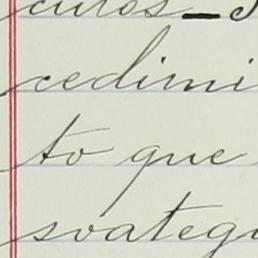 culos_
cedimi
to que
svategu